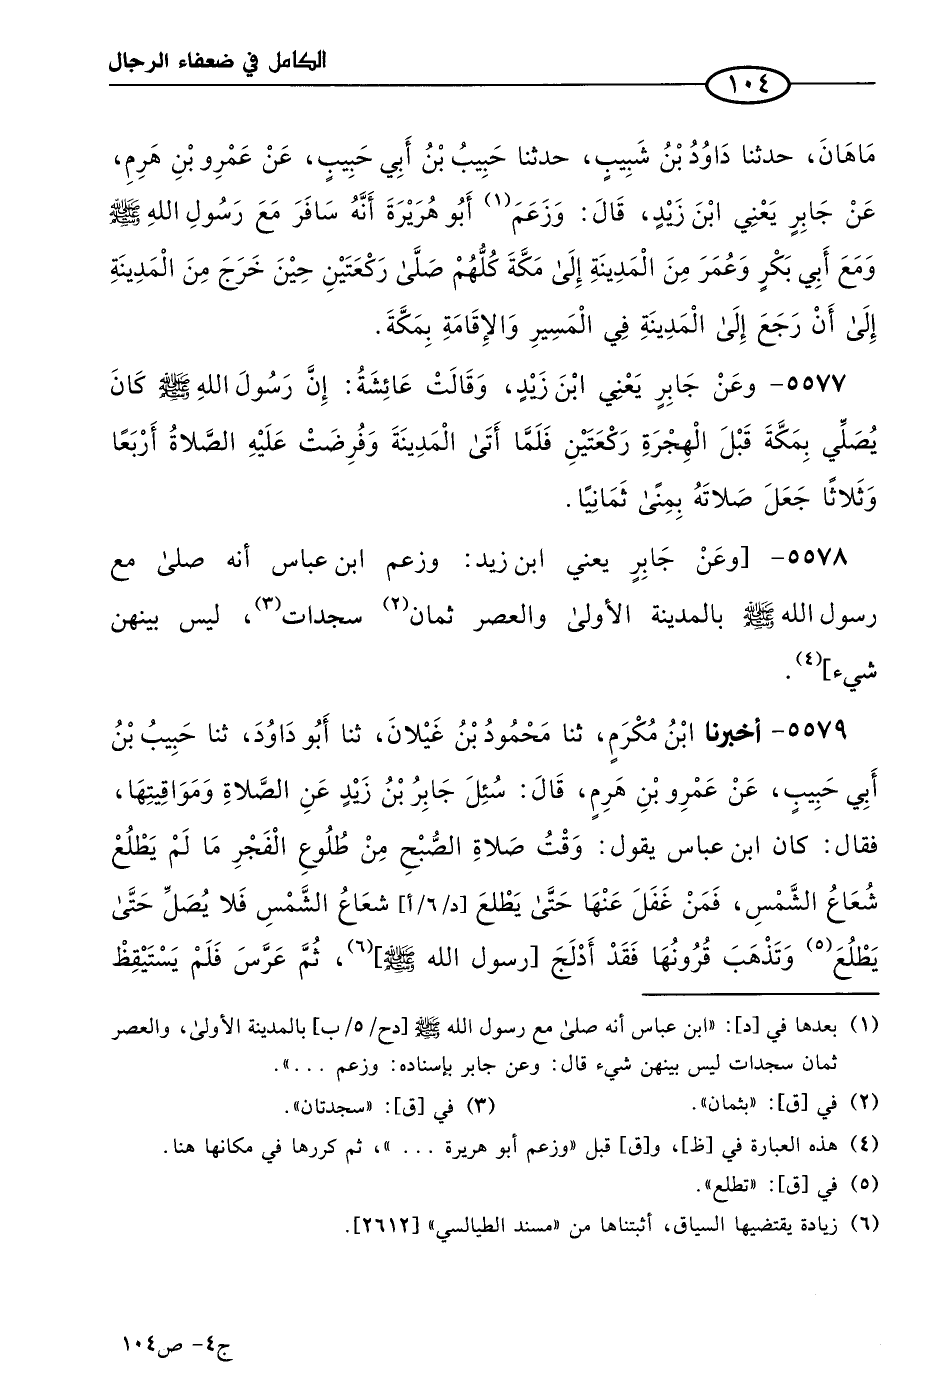 الكامل في ضعفاء الرجال
١٠٤
مَاهَانَ، حدثنا دَاوُدُ بْنُ شَبِيبٍ، حدثنا حَبِيبُ بْنُ أَبِي حَبِيبٍ، عَنْ عَمْرِو بْنِ هَرِمٍ،
عَنْ جَابِرٍ يَعْنِي ابْنَ زَيْدٍ، قَالَ: وَزَعَمَ(١) أَبُو هُرَيْرَةَ أَنَّهُ سَافَرَ مَعَ رَسُولِ اللهِ ﷺ
وَمَعَ أَبِي بَكْرٍ وَعُمَرَ مِنَ الْمَدِينَةِ إِلَىٰ مَكَّةَ كُلُّهُمْ صَلَّىٰ رَكْعَتَيْنِ حِيْنَ خَرَجَ مِنَ الْمَدِينَةِ
إِلَىٰ أَنْ رَجَعَ إِلَىٰ الْمَدِينَةِ فِي الْمَسِيرِ وَالإِقَامَةِ بِمَكَّةَ.
٥٥٧٧- وعَنْ جَابِرٍ يَعْنِي ابْنَ زَيْدٍ، وَقَالَتْ عَائِشَةُ: إِنَّ رَسُولَ اللهِ ﷺ كَانَ
يُصَلِّي بِمَكَّةَ قَبْلَ الْهِجْرَةِ رَكْعَتَيْنِ فَلَمَّا أَتَىٰ الْمَدِينَةَ وَفُرِضَتْ عَلَيْهِ الصَّلاةُ أَرْبَعًا
وَثَلاثًا جَعَلَ صَلاتَهُ بِمِنًىٰ ثَمَانِيًا.
٥٥٧٨- [وعَنْ جَابِرٍ يعني ابن زيد: وزعم ابن عباس أنه صلىٰ مع
رسول الله ﷺ بالمدينة الأولىٰ والعصر ثمان(٢) سجدات(٣)، ليس بينهن
شيء](٤).
٥٥٧٩- أخبرنا ابْنُ مُكْرَمٍ، ثنا مَحْمُودُ بْنُ غَيْلانَ، ثنا أَبُو دَاوُدَ، ثنا حَبِيبُ بْنُ
أَبِي حَبِيبٍ، عَنْ عَمْرِو بْنِ هَرِمٍ، قَالَ: سُئِلَ جَابِرُ بْنُ زَيْدٍ عَنِ الصَّلاةِ وَمَوَاقِيتِهَا،
فقال: كان ابن عباس يقول: وَقْتُ صَلاةِ الصُّبْحِ مِنْ طُلُوعِ الْفَجْرِ مَا لَمْ يَطْلُعْ
شُعَاعُ الشَّمْسِ، فَمَنْ غَفَلَ عَنْهَا حَتَّىٰ يَطْلعَ [د/٦/أ] شعَاعُ الشَّمْسِ فَلا يُصَلِّ حَتَّىٰ
يَطْلُعَ(٥) وَتَذْهَبَ قُرُونُهَا فَقَدْ أَدْلَجَ [رسول الله ﷺ](٦)، ثُمَّ عَرَّسَ فَلَمْ يَسْتَيْقِظْ
(١) بعدها في [د]: «ابن عباس أنه صلىٰ مع رسول الله ﷺ [دح/٥/ب] بالمدينة الأولىٰ، والعصر
ثمان سجدات ليس بينهن شيء قال: وعن جابر بإسناده: وزعم ...».
(٢) في [ق]: «بثمان». (٣) في [ق]: «سجدتان».
(٤) هذه العبارة في [ظ]، و[ق] قبل «وزعم أبو هريرة ... »، ثم كررها في مكانها هنا.
(٥) في [ق]: «تطلع».
(٦) زيادة يقتضيها السياق، أثبتناها من «مسند الطيالسي» [٢٦١٢].
ج٤- ص١٠٤